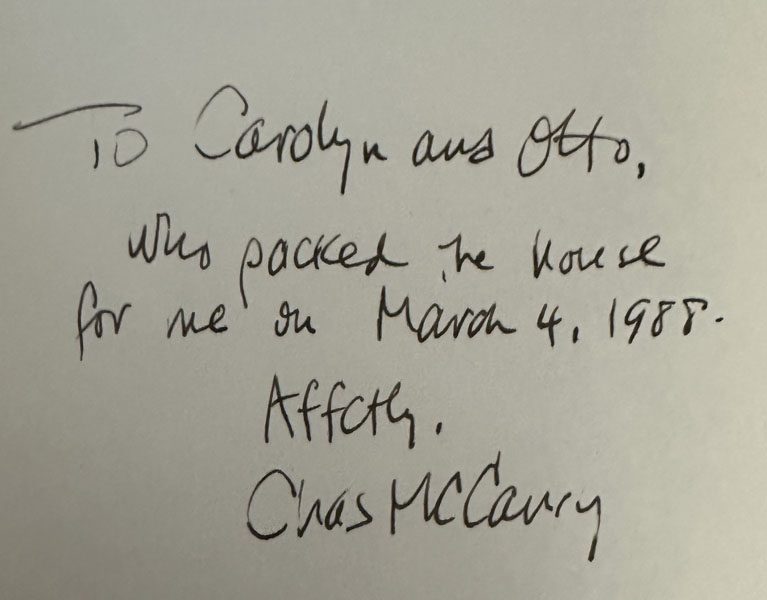 To Carolyn and Otto,
who packed the house
for me on March 4, 1988.
Affctly.
Chas McCarry